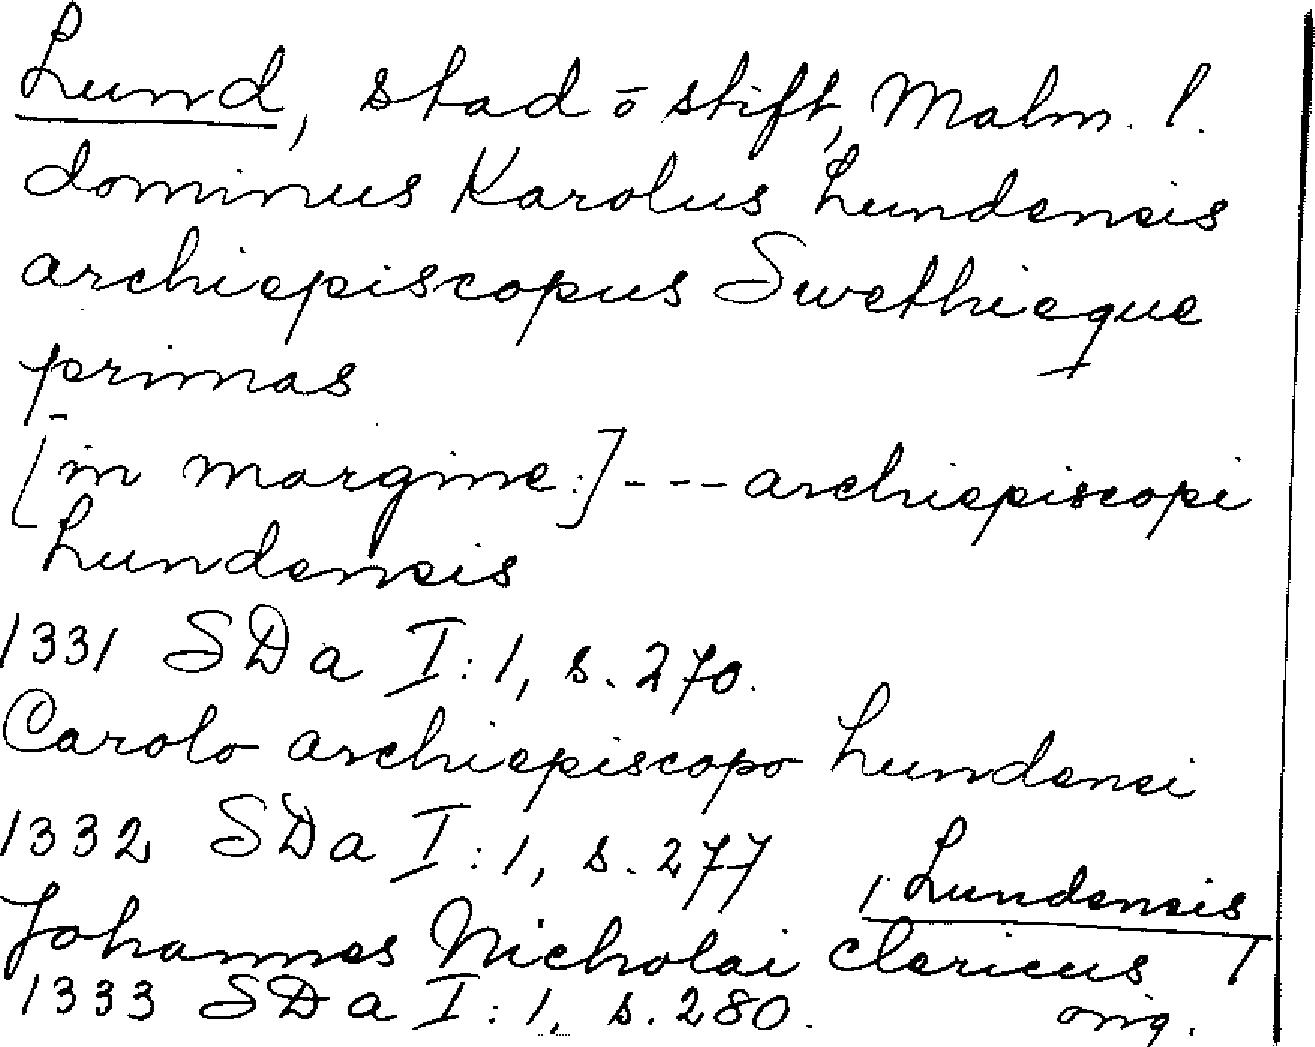 Lund, stad o stift, Malm. l.
dominus Karolus Lundensis
archiepiscopus Swethieque
primas
[in margine:] --- archiepiscopi
Lundensis
1331 SDa I:1, s. 270.
Carolo archiepiscopo Lundensi
1332 SDa I:1, s. 277
Johannes Nicholai clericus Lundensis
1333 SDa I:1, s. 280. orig.